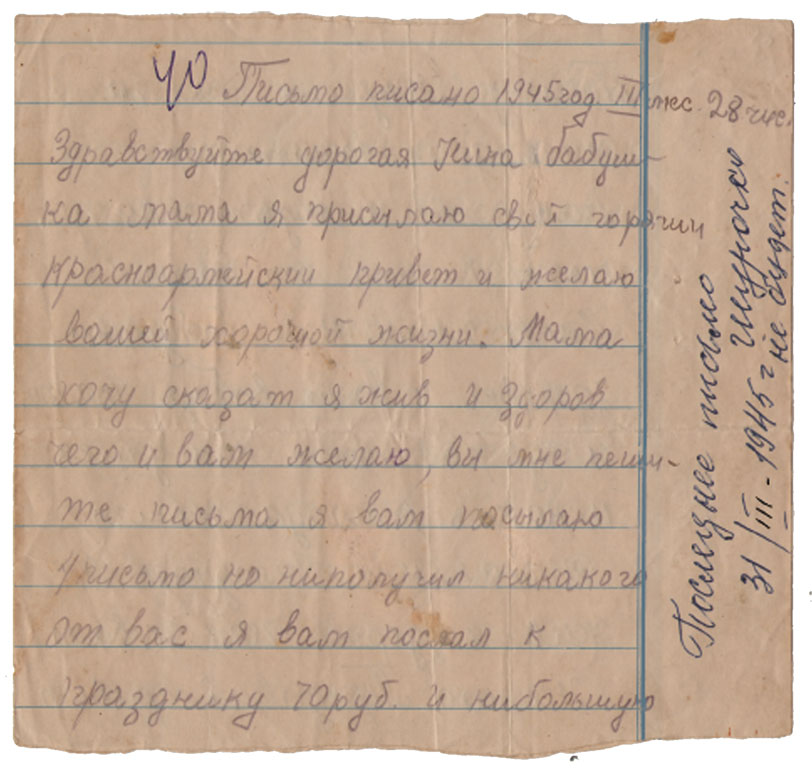 40 Письмо писано 1945 год III мес. 28 чис.
Здравствуйте дорогая Нина бабуш-
ка мама я присылаю свой горячий
красноармейский привет и желаю
вашей хорошой жизни. Мама
хочу сказат я жив и здоров
чего и вам желаю, вы мне пеши-
те письма я вам посылаю
письмо но ниполучил никакого
от вас я вам послал к
празднику 70 руб. и нибольшую
Последнее письмо Шурочки
31/III-1945 г не будет.